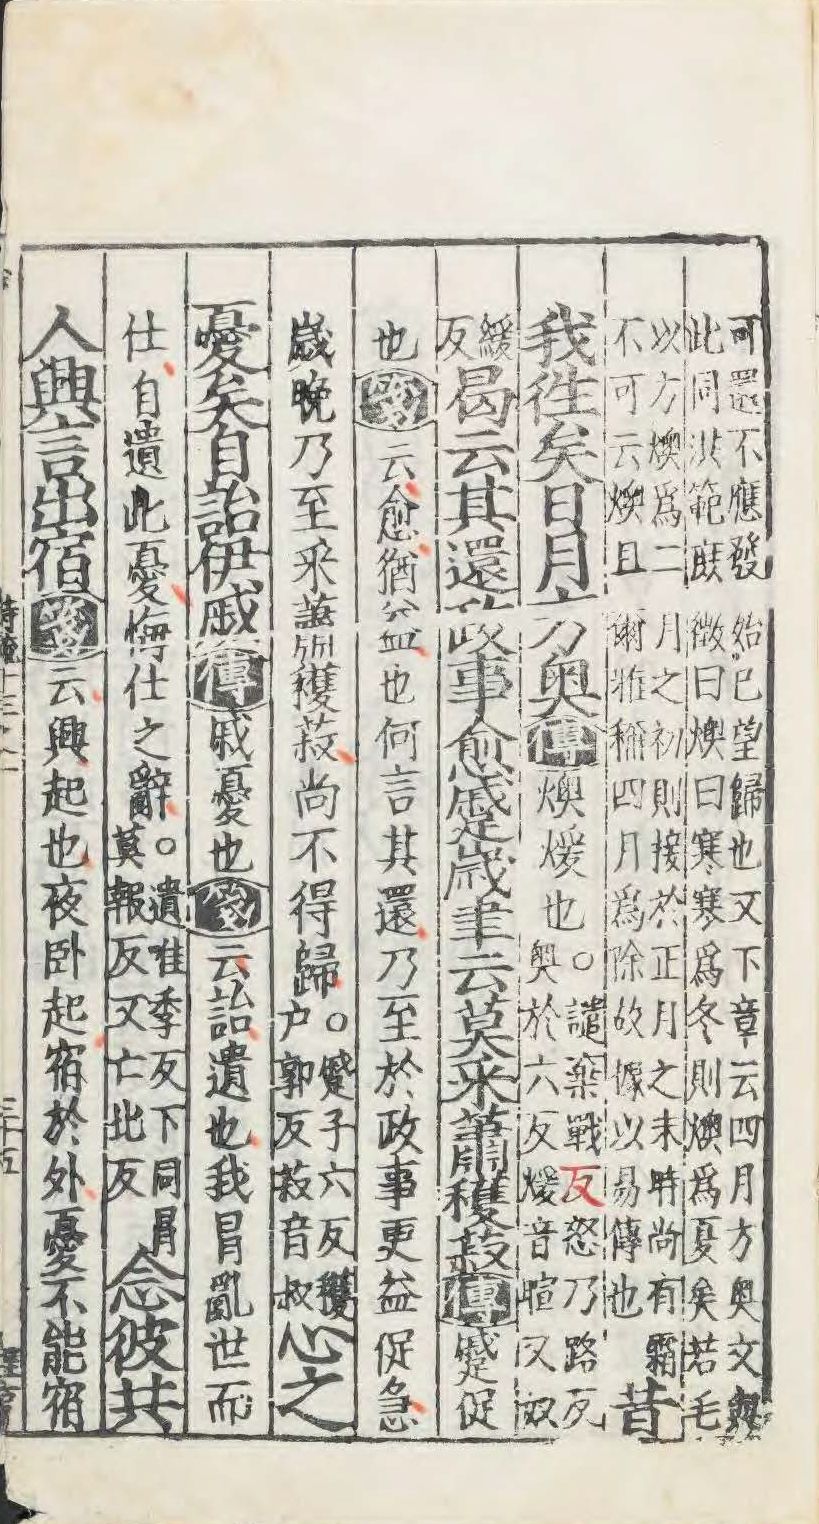 可還不應發始已望歸也又下章云四月方奥文與
此同洪範庶徵曰燠曰寒寒爲冬則燠爲夏矣若毛
以方燠爲二月之初則接於正月之末時尚有霜
不可云燠且爾雅稱四月爲除故據以易傳也
昔
我徃矣日月方奥傳燠煖也○譴棄戰反怒乃路反
奥於六反煖音暄又奴
緩反曷云其還政事愈蹙歲聿云莫采蕭穫菽傳蹙促
也箋云愈猶益也何言其還乃至於政事更益促急
歲晚乃至采蕭穫菽尚不得歸○蹙子六反穫
户郭反菽音叔
心之
憂矣自詒伊戚傳戚憂也箋云詒遺也我冒亂世而
仕自遺此憂悔仕之辭○遺唯季反下同冒
莫報反又亡北反
念彼共
人興言出宿箋云興起也夜卧起宿於外憂不能宿